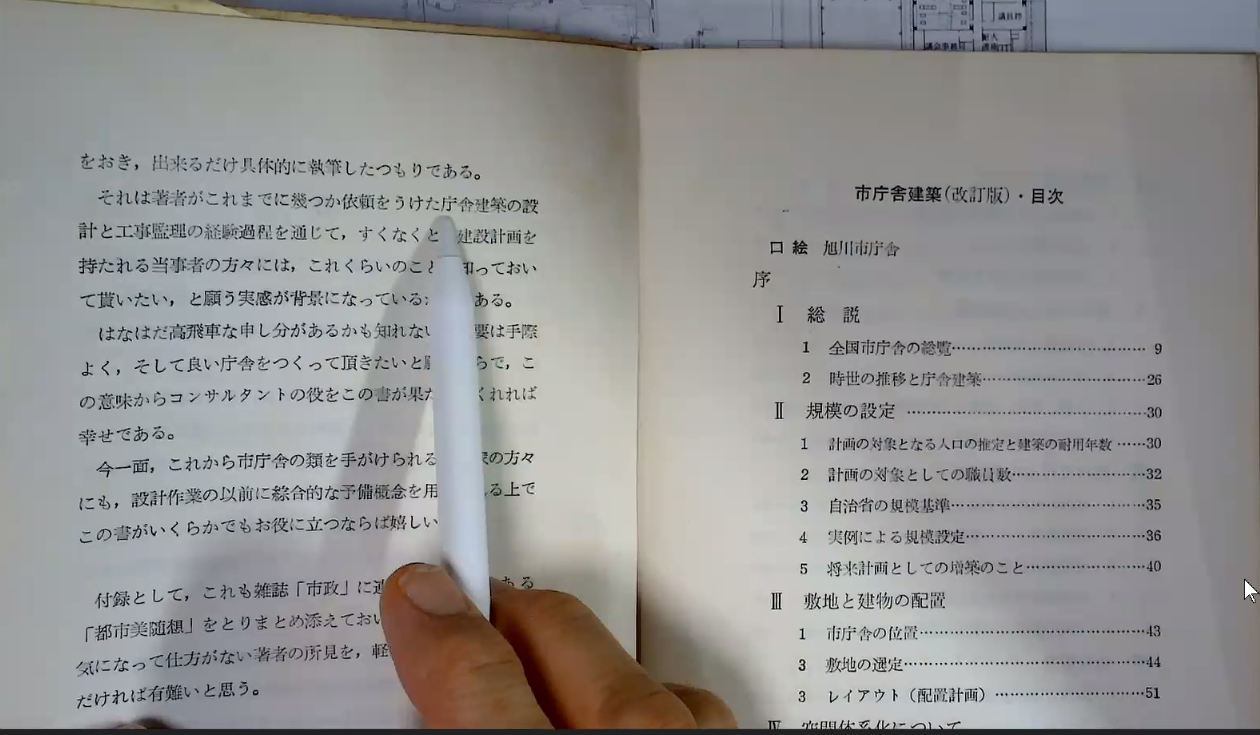 議員控
議会事務局
耐火
書庫
をおき，出来るだけ具体的に執筆したつもりである。
それは著者がこれまでに幾つか依頼をうけた庁舎建築の設
計と工事監理の経験過程を通じて，すくなくと 建設計画を
持たれる当事者の方々には，これくらいのこと 知っておい
て貰いたい，と願う実感が背景になっている ある。
はなはだ高飛車な申し分があるかも知れない 要は手際
よく，そして良い庁舎をつくって頂きたいと願 らで，こ
の意味からコンサルタントの役をこの書が果た くれれば
幸せである。
今一面，これから市庁舎の類を手がけられる の方々
にも，設計作業の以前に綜合的な予備概念を用 る上で
この書がいくらかでもお役に立つならば嬉しい
付録として，これも雑誌「市政」に連 ある
「都市美随想」をとりまとめ添えておい
気になって仕方がない著者の所見を，軽
だければ有難いと思う。
市庁舎建築（改訂版）・目次
口絵 旭川市庁舎
序
Ⅰ 総説
1 全国市庁舎の総覧……………………………… 9
2 時世の推移と庁舎建築…………………………26
Ⅱ 規模の設定 ……………………………………30
1 計画の対象となる人口の推定と建築の耐用年数 ……30
2 計画の対象としての職員数……………………32
3 自治省の規模基準………………………………35
4 実例による規模設定……………………………36
5 将来計画としての増築のこと…………………40
Ⅲ 敷地と建物の配置
1 市庁舎の位置……………………………………43
3 敷地の選定………………………………………44
3 レイアウト（配置計画） ………………………51
Ⅳ 空間体系化について